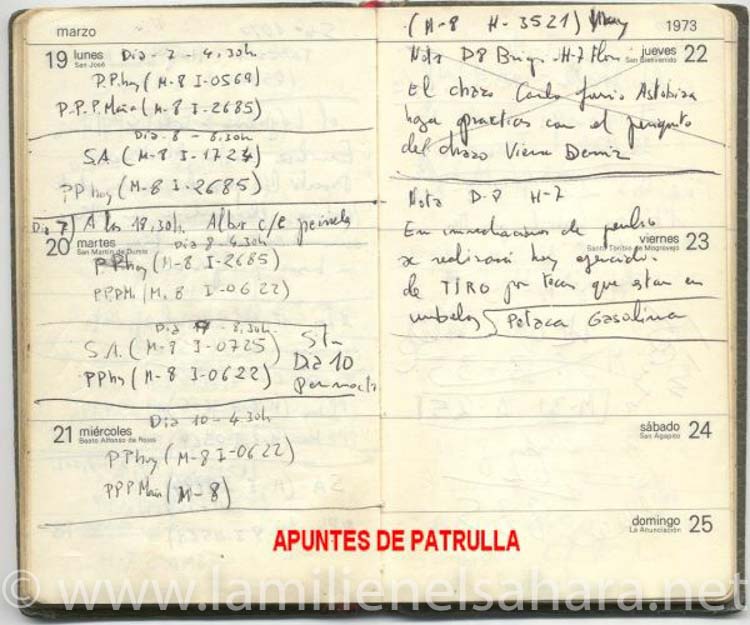 marzo
19 lunes
San José
Dia - 7 - 4,30h
P.P. hoy (M-8 I-0569)
P.P.P. Maña (M-8 I-2685)
Dia - 8 - 8,30h
S.A. (M-8 I-1724)
PP hoy (M-8 I-2685)
Dia 7) A las 18,30h.
20 martes
San Martín de Dumio
Dia 8 - 4,30h
P.P. hoy (M-8 I-2685)
PPPM. (M-8 I-0622)
8,30h.
S.A. (M-8 I-0725)
PPhoy (M-8 I-0622)
Dia 10
21 miércoles
Beato Alfonso de Rojas
Dia 10 - 4,30h
PPhoy (M-8 I-0622)
PPP Maña (M-8)
(M-8 H-3521)
1973
jueves 22
San Bienvenido
Nota D8 H-7
El chazo Carlo Astobiza
haga practicas con el
del chazo Viera Deniz
Nota D-8 H-7
viernes 23
Santo Toribio de Mogrovejo
En inmediaciones de
se realizará hoy ejercicio
de TIRO por que estan en
Petaca Gasolina
sábado 24
San Agapito
domingo 25
La Anunciación
APUNTES DE PATRULLA
© www.lamilienelsahara.net